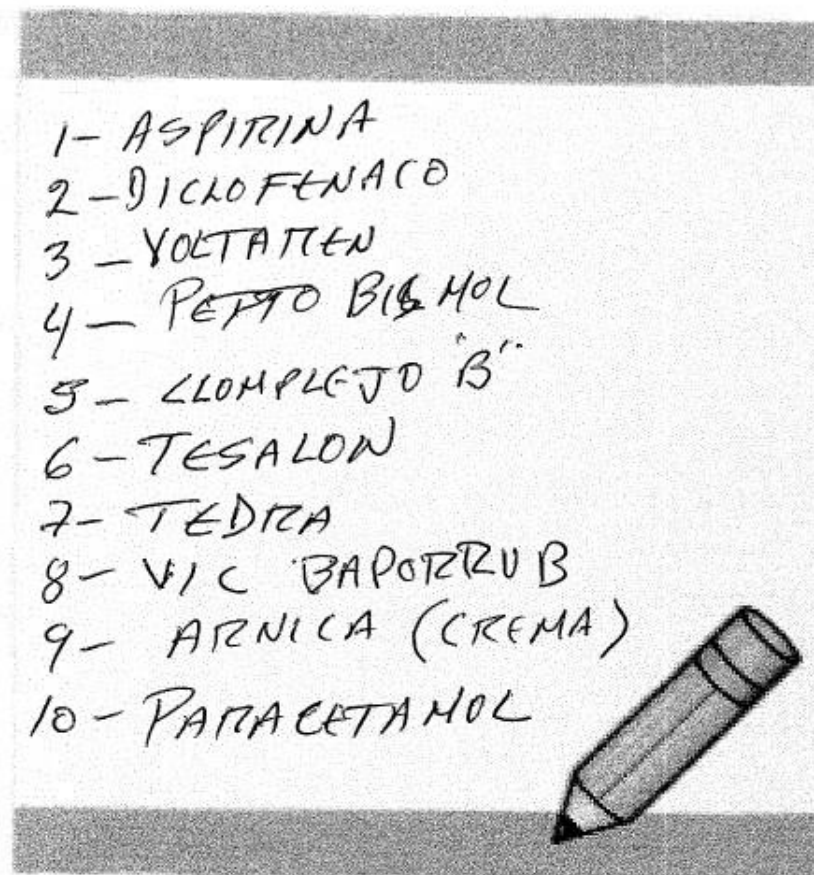 1- ASPIRINA
2-DICLOFENACO
3-VOLTAREN
4- PEPTO BISMOL
5- CLOMPLEJO "B"
6-TESALON
7- TEDRA
8- VIC BAPORRUB
9- ARNICA (CREMA)
10- PARACETAMOL